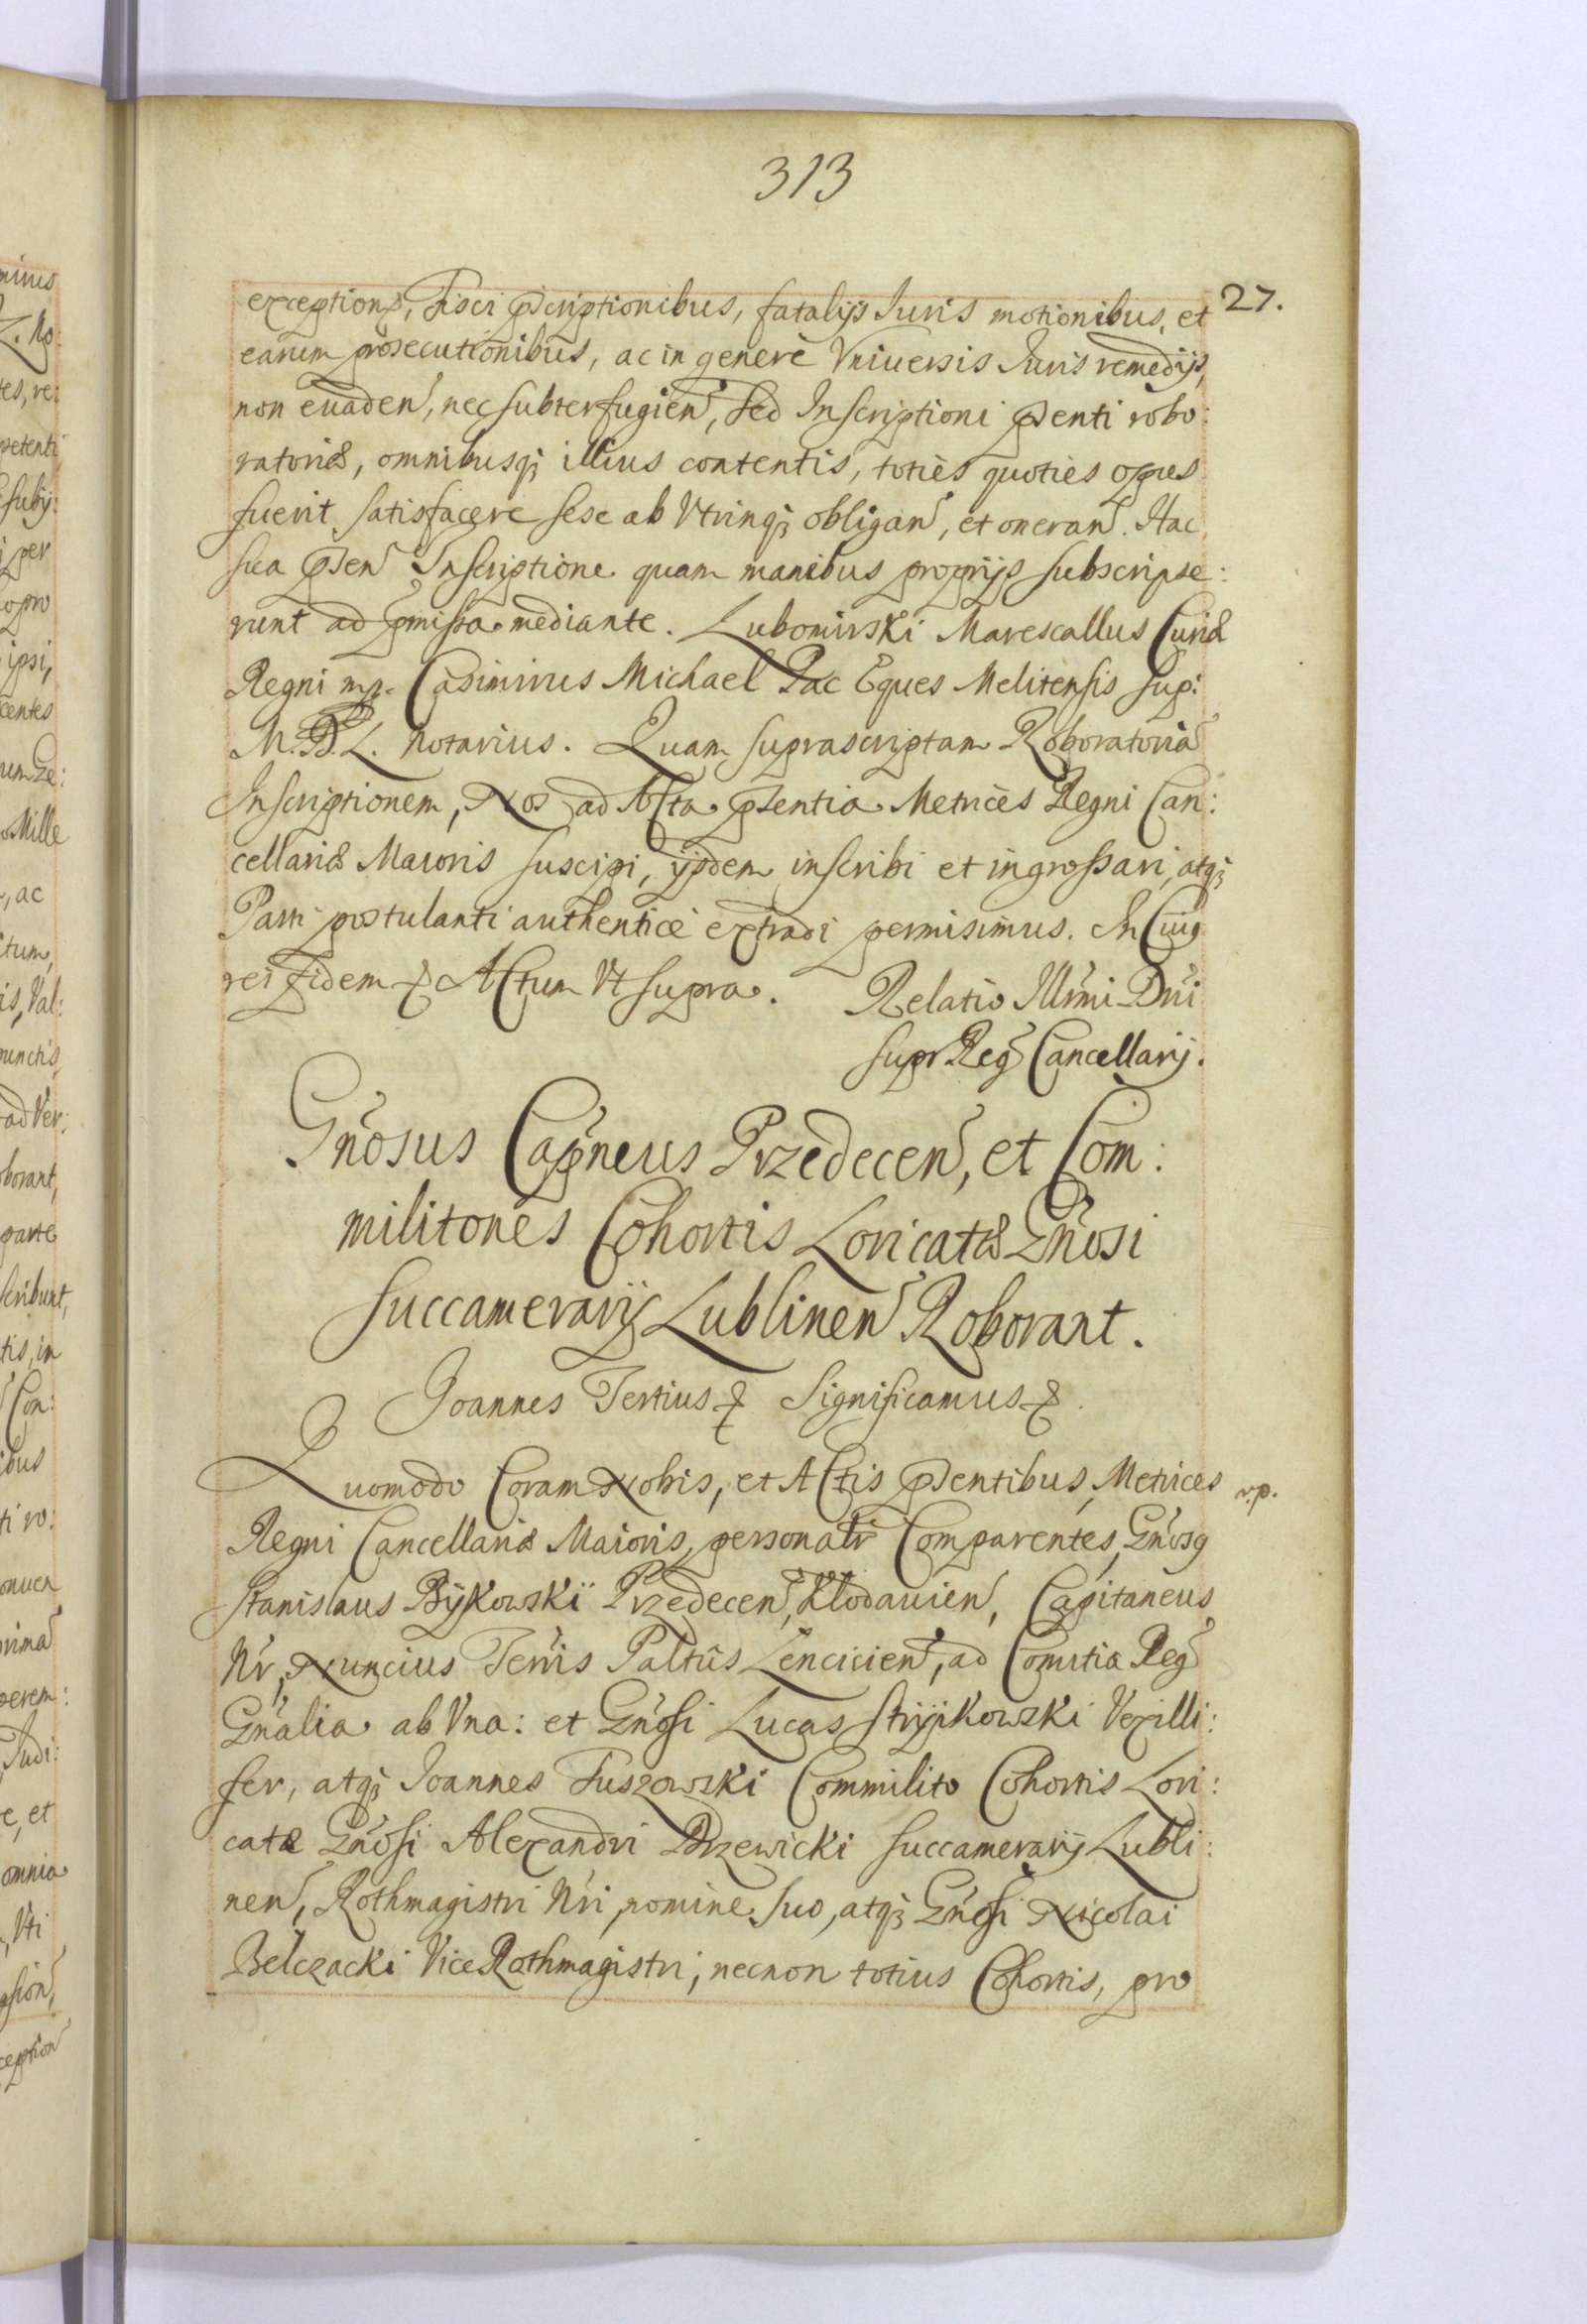 313
27.
exception, Fisci pscriptionibus, fatalijs Iuris motionibus, et
earum prosecutionibus, ac in genere Vniuersis Iuris remedijs,
non euaden, nec subterfugien, sed Inscriptioni psenti robo:
ratoriæ, omnibusq; illius contentis, toties quoties opus
fuerit satisfacere sese ab Vtrinq; obligan, et oneran. Hac
sua psen Inscriptione quam manibus proprijs subscripse:
runt ad pmissa mediante. Lubomirski Marescallus Curiæ
Regni mp. Casimirus Michael Pac Eques Melitensis sup:
M. D. L. Notarius. Quam suprascriptam Roboratoriã
Inscriptionem, Nos ad Acta psentia Metrices Regni Can:
cellariæ Maioris suscipi, ijsdem inscribi et ingrossari, atq;
Parti postulanti authentice extradi permisimus. In Cuiq
rei fidem & Actum Vt supra. Relatio Illrmi Dni
supr Reg Cancellarij.
Gnosus Capneus Przedecen, et Com:
militones Cohortis Loricatæ Gnosi
Succamerarij Lublinen Roborant.
Joannes Tertius & Significamus &.
Quomodo Coram Nobis, et Actis psentibus, Metrices rp.
Regni Cancellariæ Maioris personalr Comparentes, Gnosq
Stanislaus Bÿkowski Przedecen, Klodauien, Capitaneus
Nr, Nuncius Terris Paltûs Lencicien, ad Comitia Reg
Gnalia ab Vna: et Gnosi Lucas Stryikowski Vexilli:
fer, atq; Joannes Tuszowski Commilito Cohortis Lori:
catæ Gnosi Alexandri Drzewicki succamerarij Lubli:
nen, Rothmagistri Nri, nomine suo, atq; Gnosi Nicolai
Belczacki Vice Rothmagistri, necnon totius Cohortis, pro